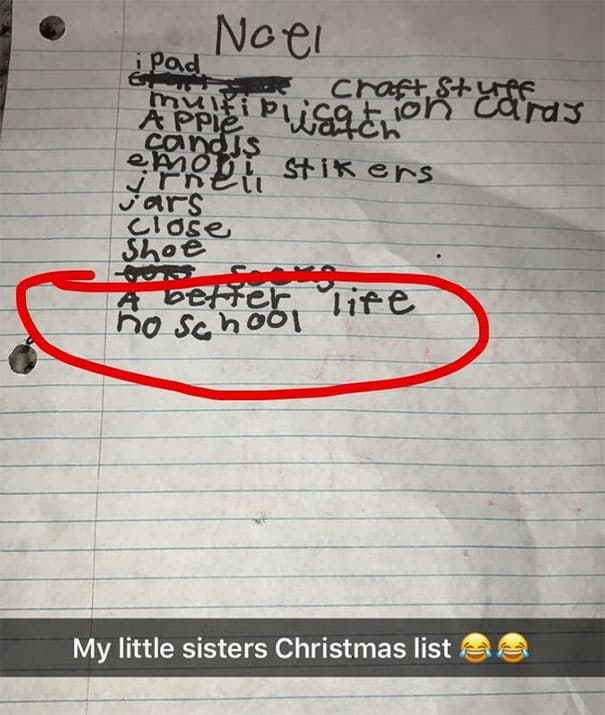 Noel
ipad
craft stuff
multiplication cards
Apple watch
candis
emoji stikers
jrnell
jars
close
shoe
A better life
no school
My little sisters Christmas list 😂😂